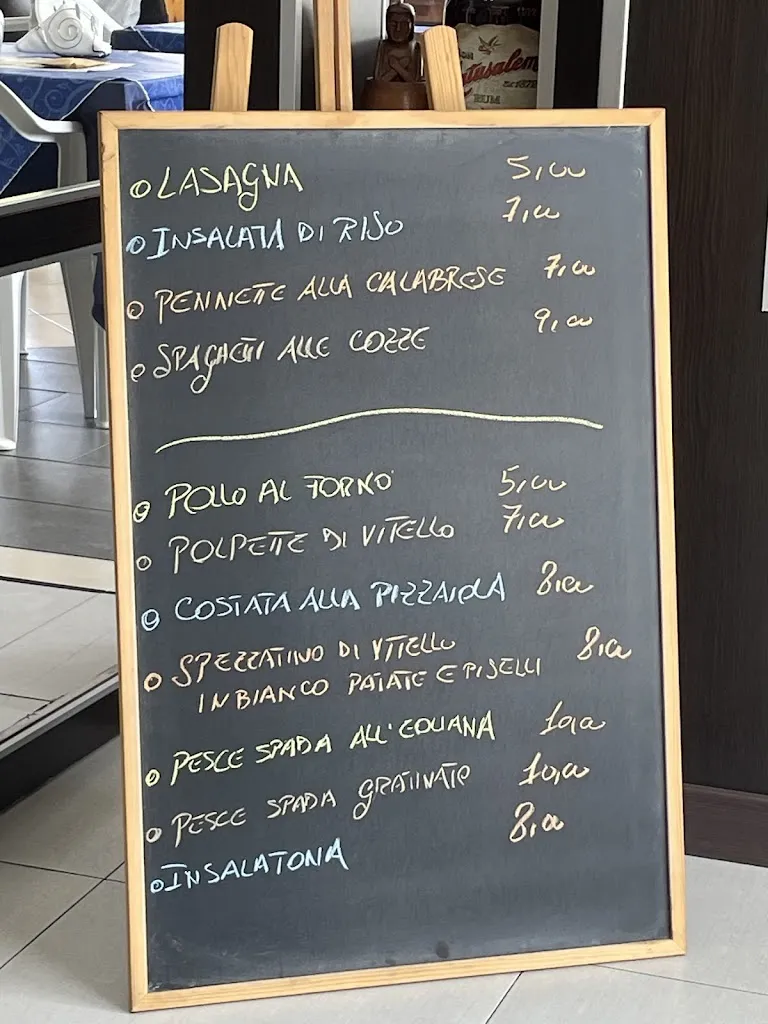 Matusalem
RUM
LASAGNA 5,00
INSALATA DI RISO 7,00
PENNETTE ALLA CALABRESE 7,00
SPAGHETTI ALLE COZZE 9,00
POLLO AL FORNO 5,00
POLPETTE DI VITELLO 7,00
COSTATA ALLA PIZZAIOLA 8,00
SPEZZATINO DI VITELLO 8,00
IN BIANCO PATATE E PISELLI
PESCE SPADA ALL'EOLIANA 10,00
PESCE SPADA GRATINATO 10,00
INSALATONA 8,00